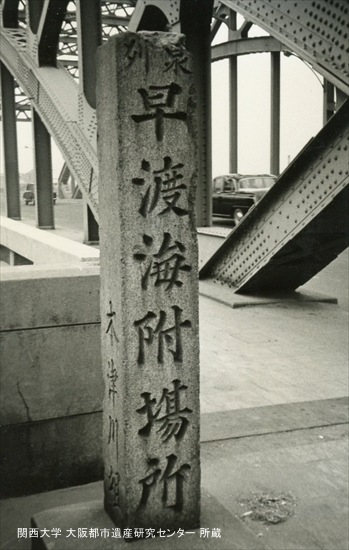 早渡海附場所
木津川
関西大学 大阪都市遺産研究センター 所蔵